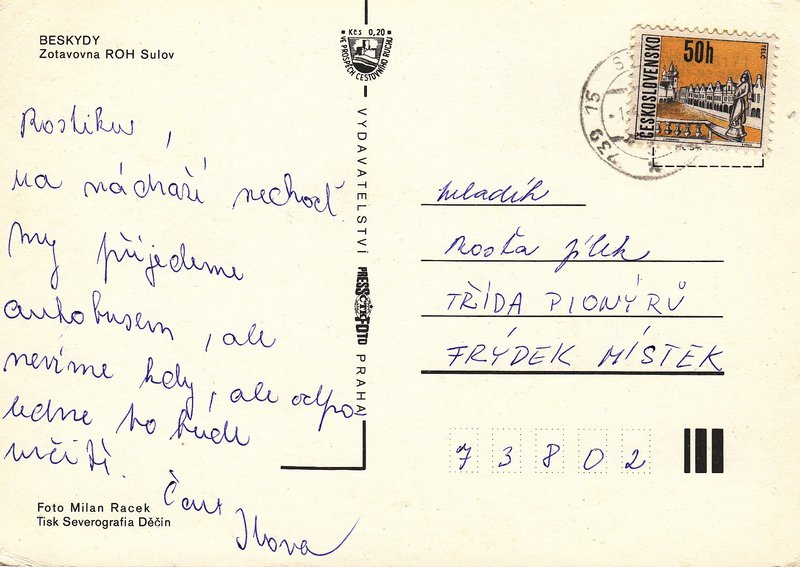 BESKYDY
Zotavovna ROH Sulov
Rostiku,
na nádraží nechoď
my přijedeme
autobusem, ale
nevíme kdy, ale odpo
ledne to bude
určitě.
Čau
Foto Milan Racek
Tisk Severografia Děčín
Kčs 0,20
VE PROSPĚCH CESTOVNÍHO RUCHU
VYDAVATELSTVÍ PRESSFOTO PRAHA
ČTK
ČESKOSLOVENSKO
50h
TELČ
739 15
mladík
Rosťa Jílek
TŘÍDA PIONÝRŮ
FRÝDEK MÍSTEK
73802